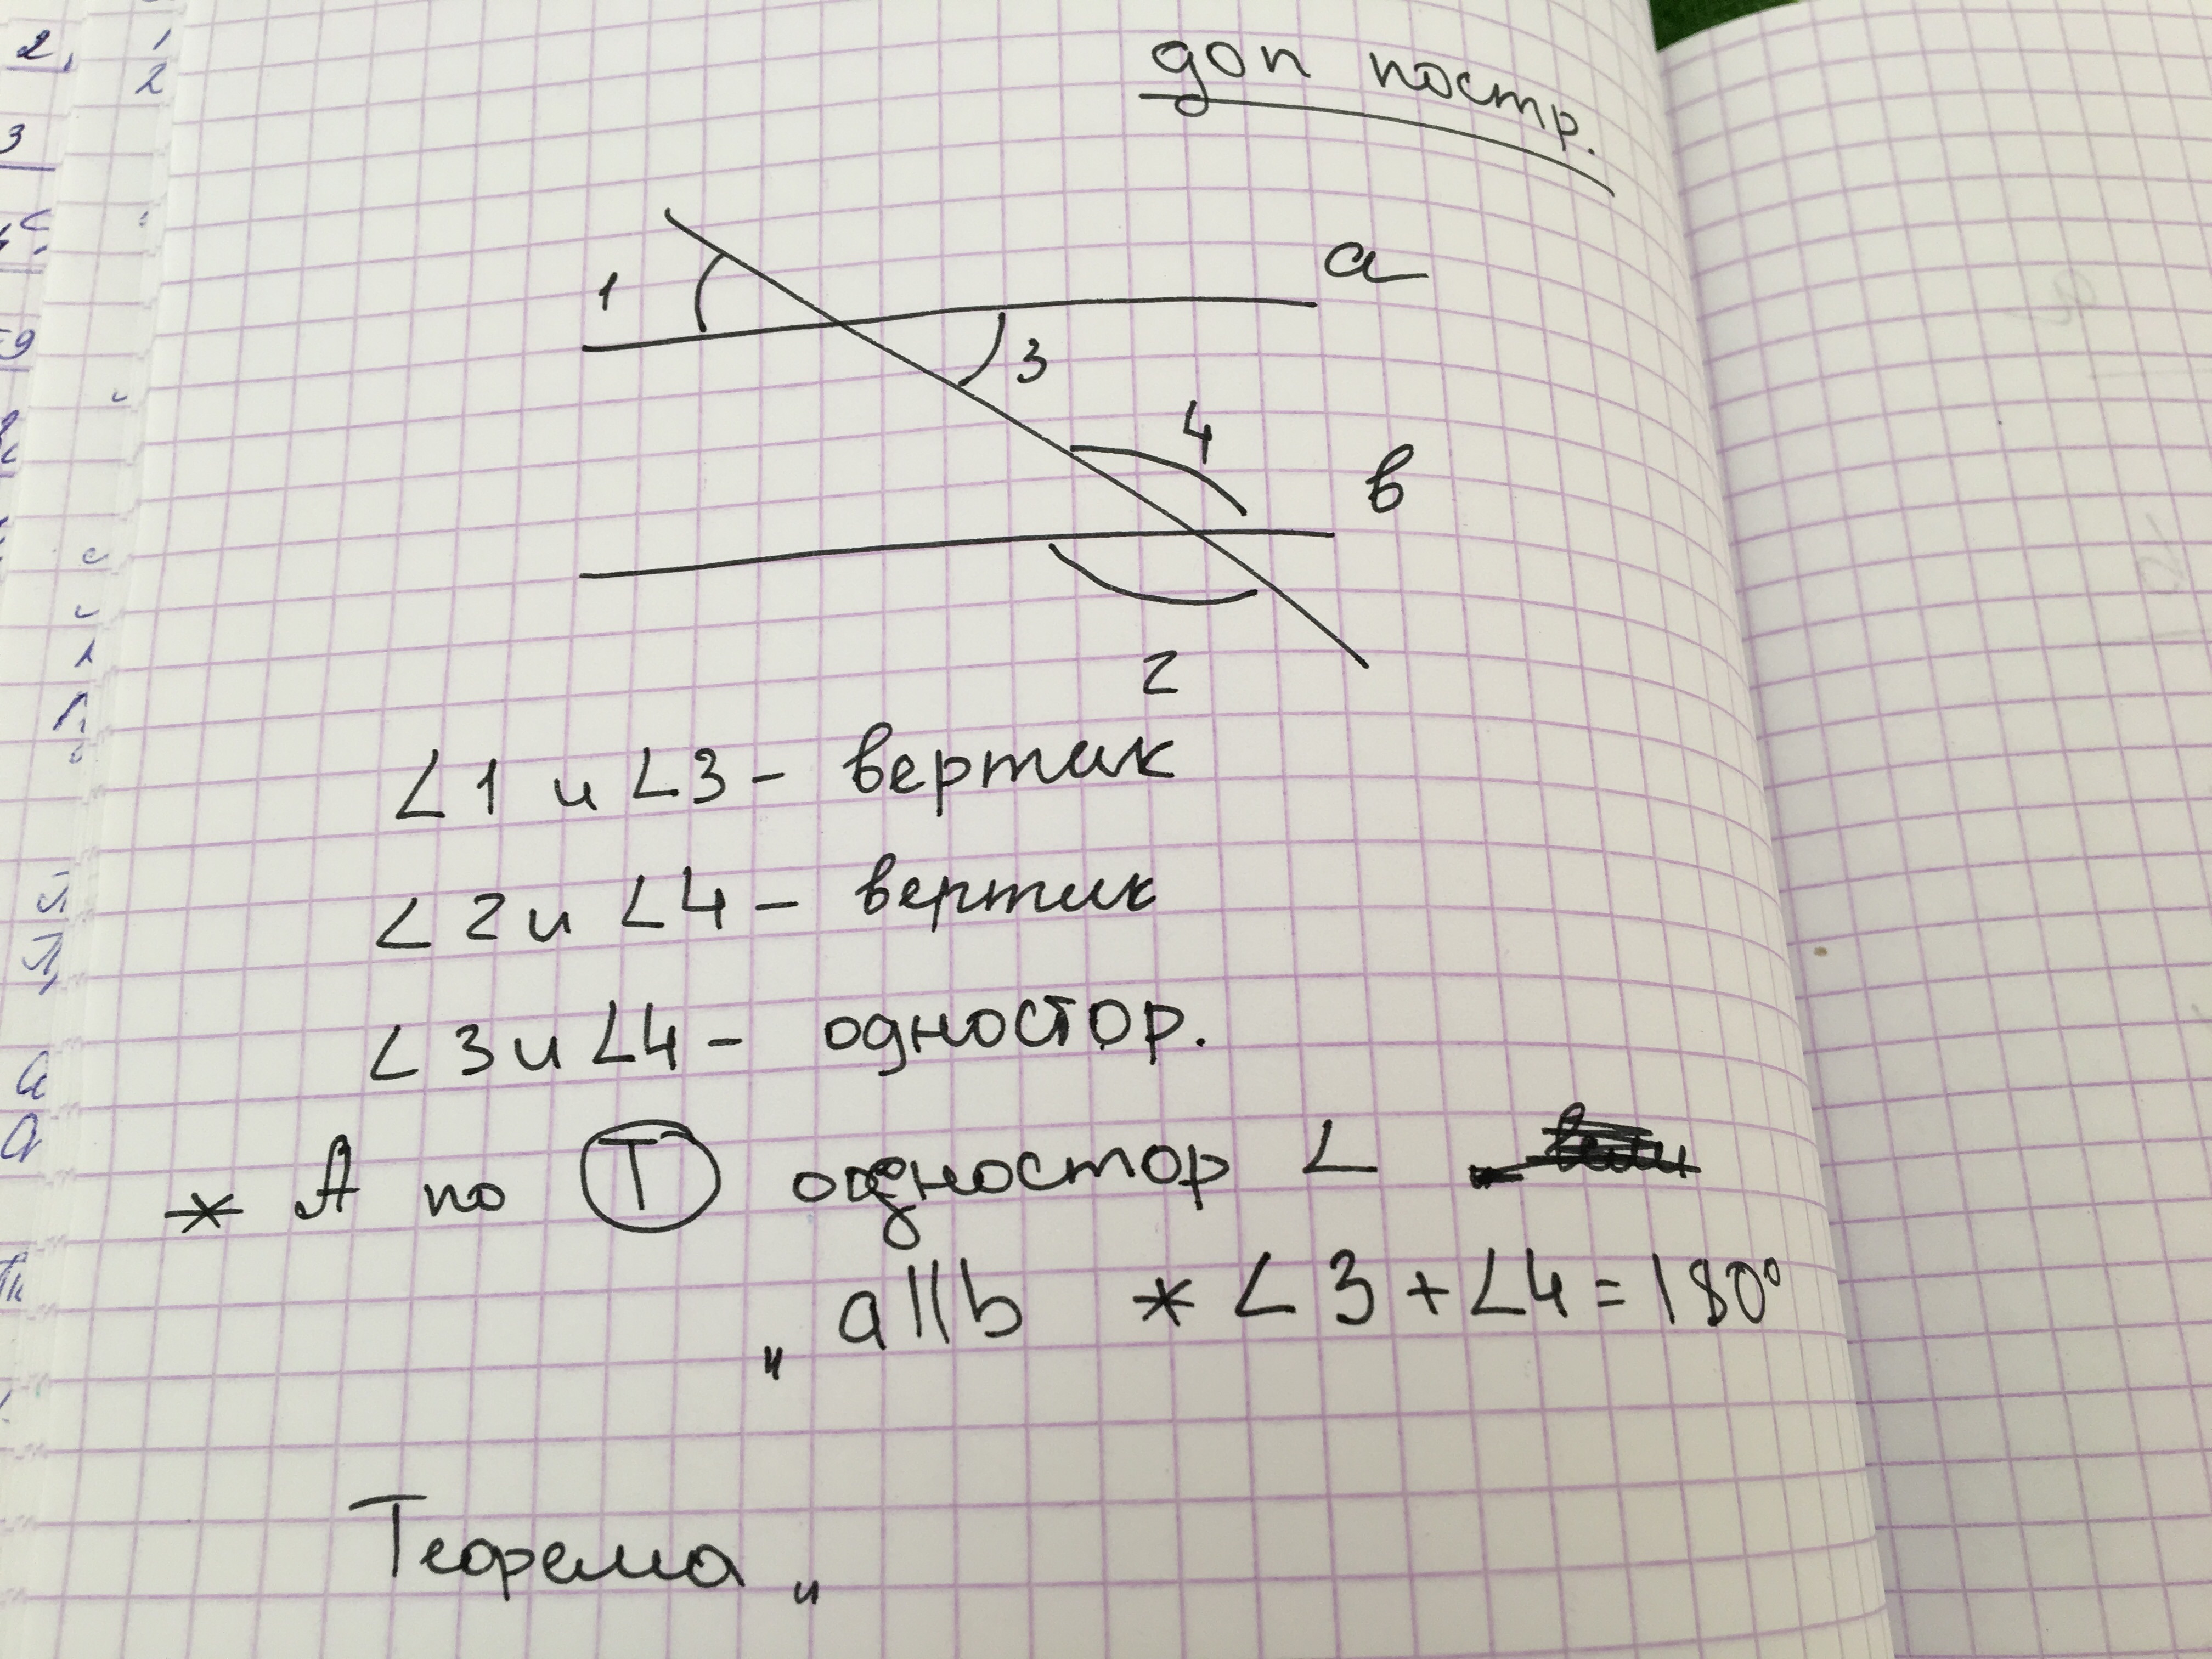 доп постр.
1
a
3
4
в
2
∠1 и ∠3 - вертик
∠2 и ∠4 - вертик
∠3 и ∠4 - одностор.
* А по Т одностор ∠
„ a||b * ∠3 + ∠4 = 180°
Теорема „